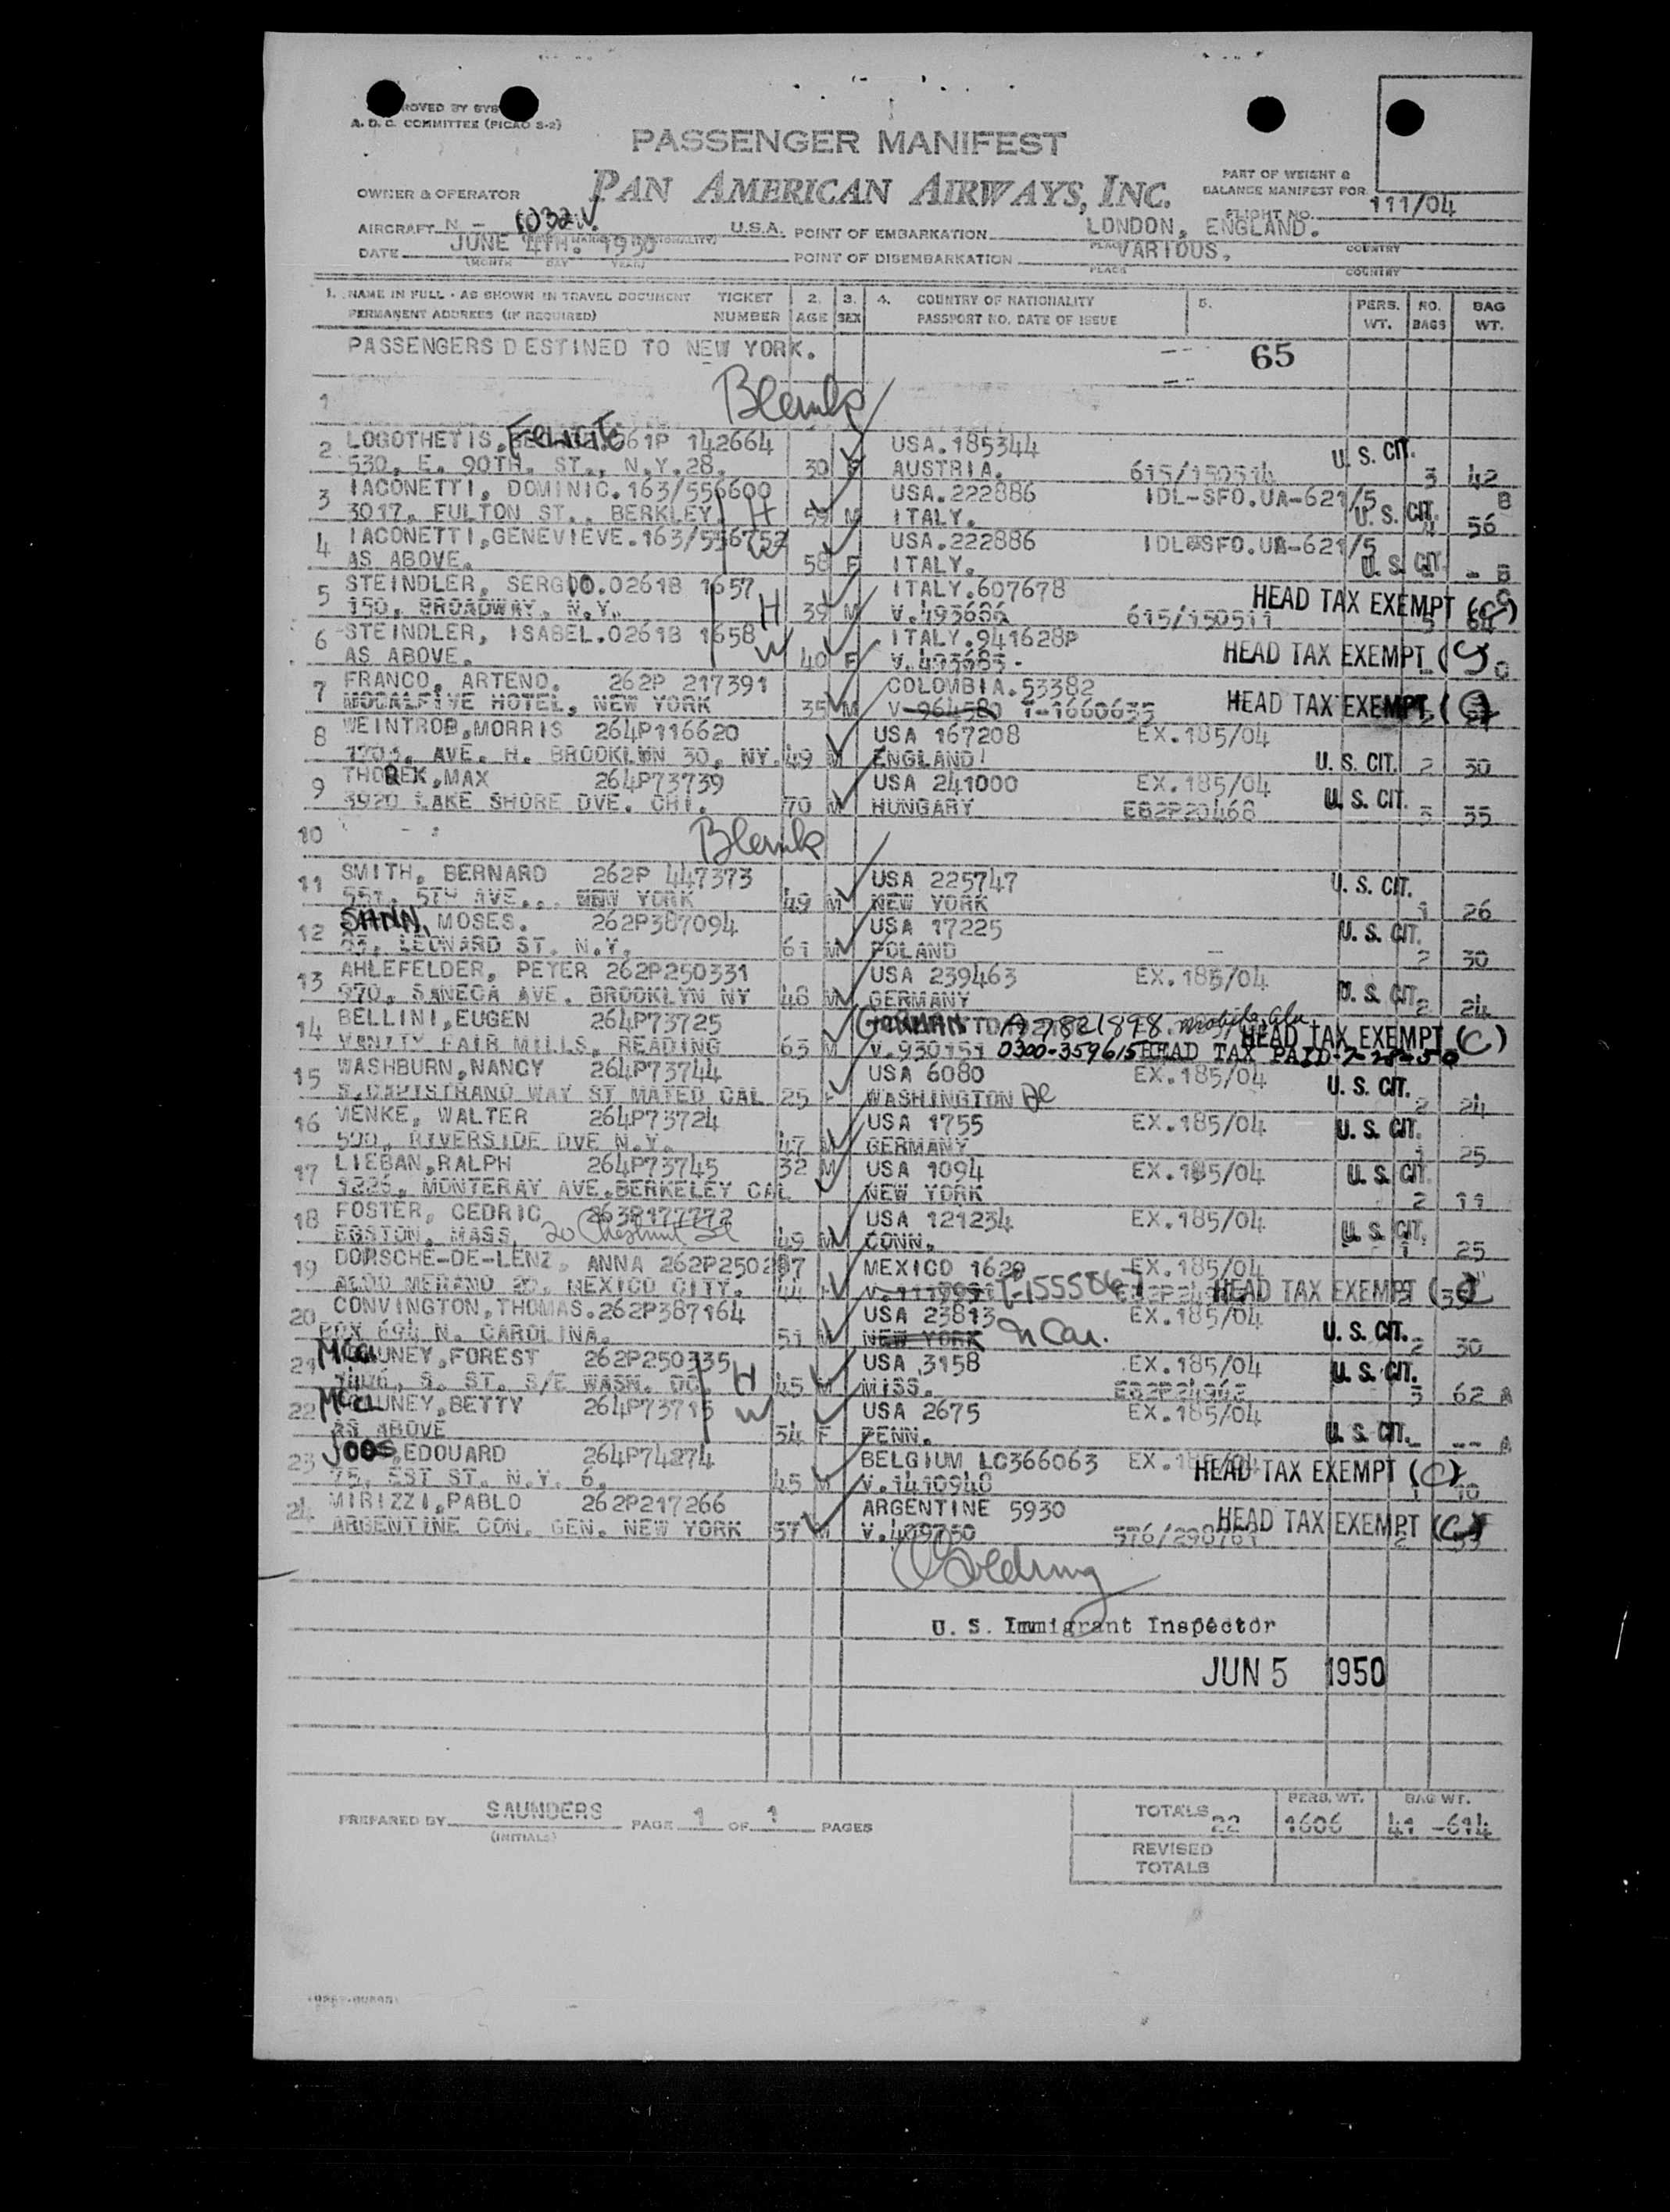 ROVED BY SYS
A. D. C. COMMITTEE (PICAO S-2)
PASSENGER MANIFEST
OWNER & OPERATOR PAN AMERICAN AIRWAYS, INC.
PART OF WEIGHT &
BALANCE MANIFEST FOR
FLIGHT NO. 111/04
AIRCRAFT N - 1032V U.S.A. POINT OF EMBARKATION LONDON, ENGLAND.
PLACE COUNTRY
DATE JUNE 4TH. 1950 POINT OF DISEMBARKATION VARIOUS,
(MONTH DAY YEAR) PLACE COUNTRY
1. NAME IN FULL - AS SHOWN IN TRAVEL DOCUMENT TICKET 2. 3. 4. COUNTRY OF NATIONALITY 5. PERS. NO. BAG
PERMANENT ADDRESS (IF REQUIRED) NUMBER AGE SEX PASSPORT NO. DATE OF ISSUE WT. BAGS WT.
PASSENGERS DESTINED TO NEW YORK. 65
1 Blank
2 LOGOTHETIS, FELICITE 61P 142664 USA.185344 U. S. CIT.
530, E. 90TH. ST., N.Y.28. 30 F AUSTRIA. 615/150514 3 42
3 IACONETTI, DOMINIC.163/556600 USA.222886 IDL-SFO.UA-621/5 B
3017, FULTON ST., BERKLEY. H 59 M ITALY. U. S. CIT. 4 56
4 IACONETTI,GENEVIEVE.163/556752 W USA.222886 IDL-SFO.UA-621/5
AS ABOVE. 58 F ITALY. U. S. CIT. - - B
5 STEINDLER, SERGIO.02618 1657 ITALY.607678 HEAD TAX EXEMPT (C)
150, BROADWAY, N.Y. H 39 M V.493686 615/150511 5 64
6 STEINDLER, ISABEL.02618 1658 W ITALY.941628P HEAD TAX EXEMPT (C)
AS ABOVE. 40 F V.493685 - C
7 FRANCO, ARTENO. 262P 217391 COLOMBIA.53382
MCCALPINE HOTEL, NEW YORK 35 M V-964580 T-1660635 HEAD TAX EXEMPT (C)
8 WEINTROB,MORRIS 264P116620 USA 167208 EX.185/04
AVE. H. BROOKLYN 30, NY. 49 M ENGLAND U. S. CIT. 2 30
9 THOREK,MAX 264P73739 USA 241000 EX.185/04
3920 LAKE SHORE DVE. CHI. 70 M HUNGARY EB2P20468 U. S. CIT. 3 35
10 Blank
11 SMITH, BERNARD 262P 447373 USA 225747 U. S. CIT.
551, 5TH AVE... NEW YORK 49 M NEW YORK 1 26
12 SANN, MOSES. 262P387094 USA 17225 U. S. CIT.
LEONARD ST. N.Y. 61 M POLAND 2 30
13 AHLEFELDER, PETER 262P250331 USA 239463 EX.185/04
970, SANECA AVE. BROOKLYN NY 48 M GERMANY U. S. CIT. 2 24
14 BELLINI,EUGEN 264P73725 GERMAN A 7821898 Mobile, Ala HEAD TAX EXEMPT (C)
VANITY FAIR MILLS, READING 63 M V.930151 0300-359615 HEAD TAX PAID-7-28-50
15 WASHBURN,NANCY 264P73744 USA 6080 EX.185/04
CAPISTRANO WAY ST MATEO CAL 25 F WASHINGTON DC U. S. CIT. 2 24
16 MENKE, WALTER 264P73724 USA 1755 EX.185/04
500, RIVERSIDE DVE N.Y. 47 M GERMANY U. S. CIT. 1 25
17 LIEBAN,RALPH 264P73745 32 M USA 1094 EX.185/04
1225, MONTERAY AVE.BERKELEY CAL NEW YORK U. S. CIT. 2 11
18 FOSTER, CEDRIC 263P177772 USA 121234 EX.185/04
EGSTON, MASS. 20 Chestnut St 49 M CONN. U. S. CIT. 1 25
19 DORSCHE-DE-LENZ, ANNA 262P250297 MEXICO 1629 EX.185/04
MERANO 20, MEXICO CITY. 44 F T-1555567 HEAD TAX EXEMPT (C)
20 CONVINGTON,THOMAS.262P387164 USA 23813 EX.185/04
BOX 694 N. CAROLINA. 51 M NEW YORK N Car. U. S. CIT. 2 30
21 McCLUNEY,FOREST 262P250335 USA 3158 EX.185/04
S. ST. S/E WASH. DC. H 45 M MISS. EB2P24942 U. S. CIT. 3 62 A
22 McCLUNEY,BETTY 264P73715 W USA 2675 EX.185/04
AS ABOVE 54 F PENN. U. S. CIT. - -- A
23 JOOS,EDOUARD 264P74274 BELGIUM LC366063 EX.185/04 HEAD TAX EXEMPT (C)
75, EST ST. N.Y. 6. 45 M V.1410948 1 10
24 MIRIZZI,PABLO 262P217266 ARGENTINE 5930 HEAD TAX EXEMPT (C)
ARGENTINE CON. GEN. NEW YORK 57 M V.409750 576/298761 2 33
Goldring
U. S. Immigrant Inspector
JUN 5 1950
PREPARED BY SAUNDERS PAGE 1 OF 1 PAGES
(INITIALS)
PERS. WT. BAG WT.
TOTALS 22 1606 41 -614
REVISED
TOTALS